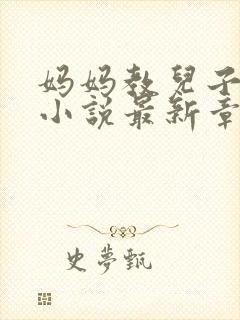 妈妈教兒子
小説最新章
史夢甄